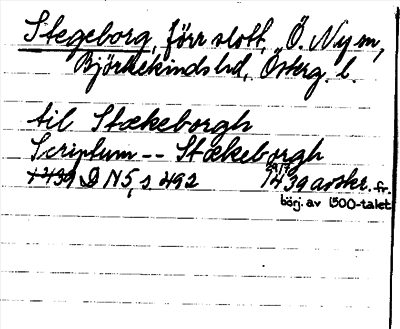 Stegeborg, förr slott, Ö. Ny sn,
Björkekinds hd, Österg. l.
til Stækeborgh
Scriptum -- Stækeborgh
1439 D N 5, s 492 29/7 1439 avskr. fr.
börj. av 1500-talet